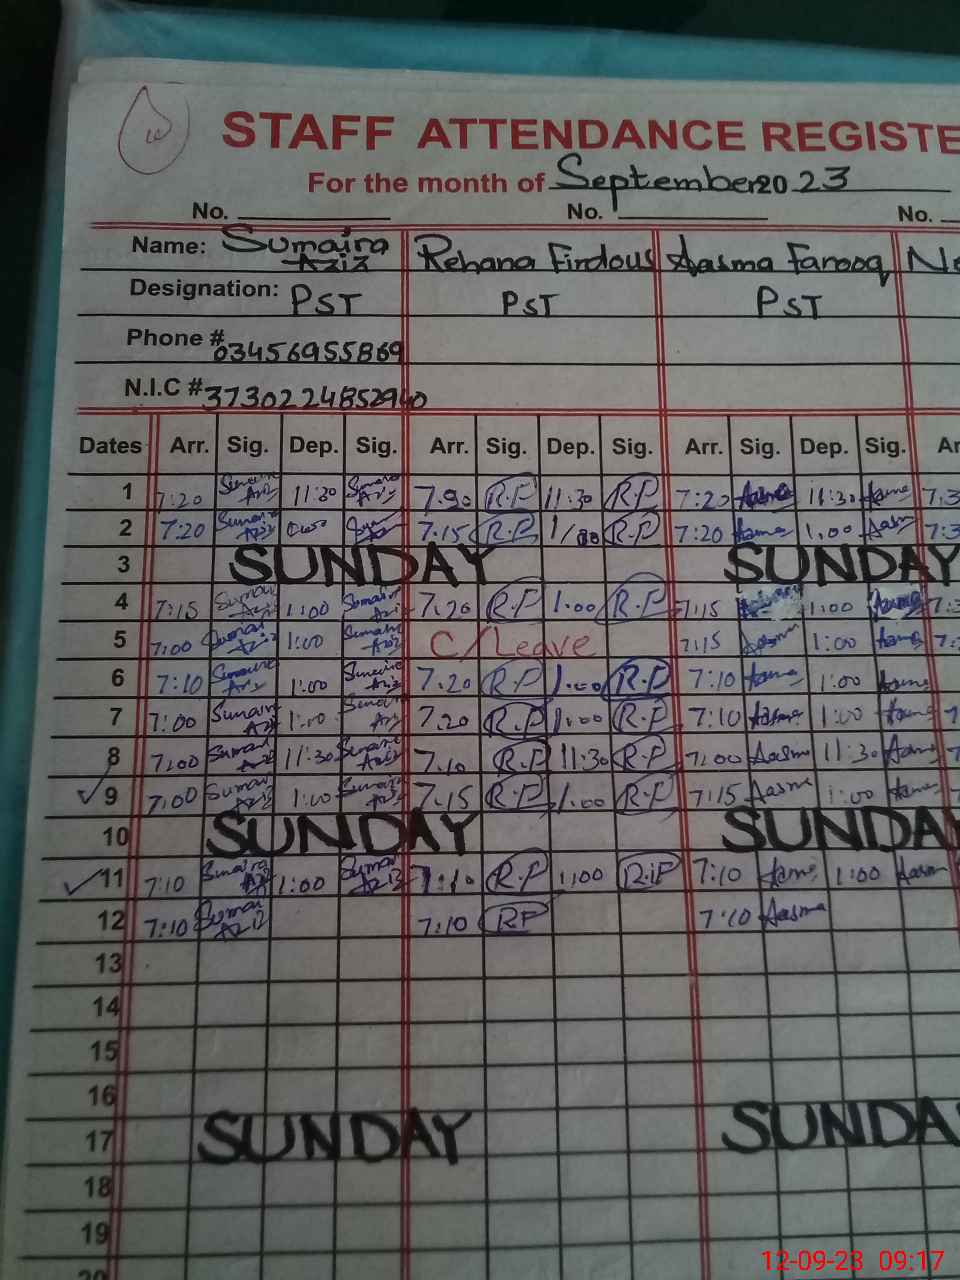 STAFF ATTENDANCE REGISTE
For the month of September 20 23
No. No. No.
Name: Sumaira Aziz Rehana Firdous Aasma Farooq
Designation: PST PST PST
Phone # 03456955869
N.I.C # 3730224852940
Dates Arr. Sig. Dep. Sig. Arr. Sig. Dep. Sig. Arr. Sig. Dep. Sig. Ar
1 7:20 Sumaira Aziz 11:30 Sumaira Aziz 7.20 R.F 11:30 R.F 7:20 Aasma 11:30 Aasma 7:3
2 7:20 Sumaira Aziz 7:15 R.F 1/00 R.F 7:20 Aasma 1.00 Aasm 7:3
3 SUNDAY SUNDAY
4 7:15 Sumaira Aziz 1:00 Sumaira Aziz 7.20 R.F 1.00 R.F 7:15 1:00 Aasma 7:3
5 7:00 Sumaira Aziz 1:00 Sumaira Aziz C/Leave 7:15 Aasma 1:00 Aasma 7:
6 7:10 Sumaira Aziz 1:00 Sumaira Aziz 7.20 R.F 1.00 R.F 7:10 Aasma 1:00 Aasma
7 7:00 Sumaira Aziz 1:00 Sumaira Aziz 7.20 R.F 1:00 R.F 7:10 Aasma 1:00 Aasma
8 7:00 Sumaira Aziz 11:30 Sumaira Aziz 7.10 R.F 11:30 R.F 7:00 Aasma 11:30 Aasma
9 7:00 Sumaira Aziz 1:00 Sumaira Aziz 7.15 R.F 1.00 R.F 7:15 Aasma 1:00 Aasma
10 SUNDAY SUNDAY
11 7:10 Sumaira Aziz 1:00 Sumaira Aziz 7:10 R.F 1:00 R.F 7:10 Aasma 1:00 Aasm
12 7:10 Sumaira Aziz 7:10 RF 7:10 Aasma
13
14
15
16
17 SUNDAY SUNDA
18
19
20
12-09-23 09:17